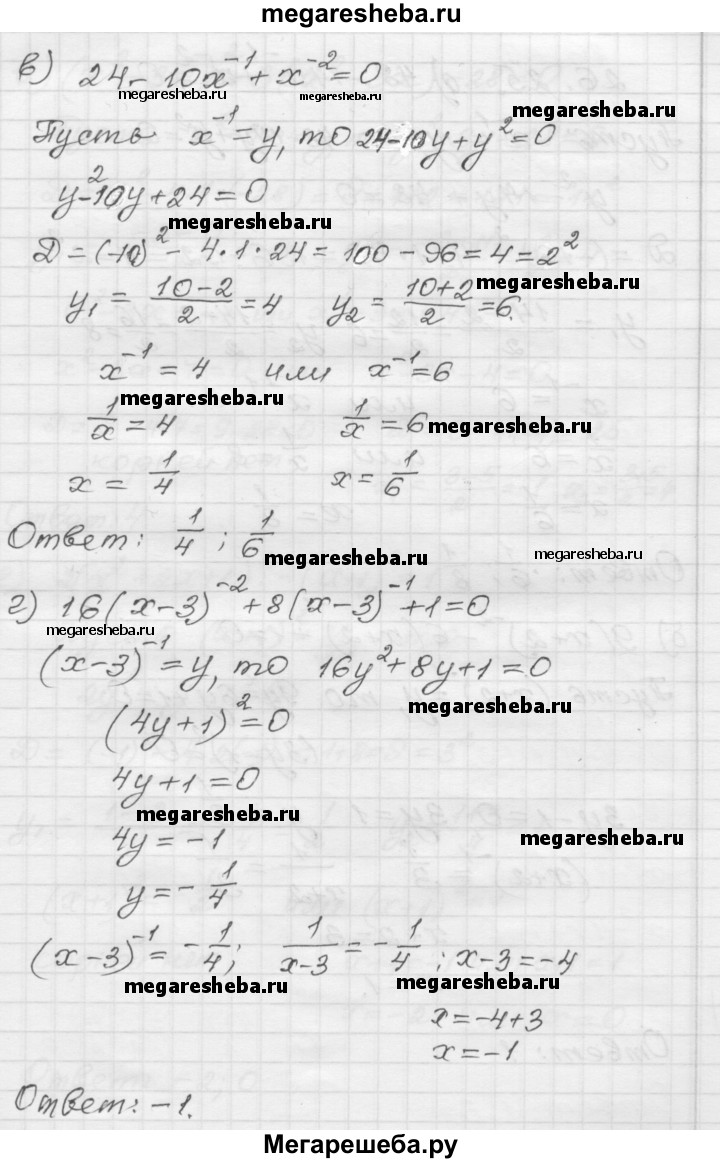 megaresheba.ru
в) 24 - 10x⁻¹ + x⁻² = 0
megaresheba.ru megaresheba.ru
megaresheba.ru
Пусть x⁻¹ = y, то 24 - 10y + y² = 0
y² - 10y + 24 = 0
megaresheba.ru
Д = (-10)² - 4·1·24 = 100 - 96 = 4 = 2²
megaresheba.ru
y₁ = (10-2)/2 = 4 y₂ = (10+2)/2 = 6.
x⁻¹ = 4 или x⁻¹ = 6
megaresheba.ru
1/x = 4 1/x = 6
megaresheba.ru
x = 1/4 x = 1/6
Ответ: 1/4 ; 1/6
megaresheba.ru megaresheba.ru
г) 16(x-3)⁻² + 8(x-3)⁻¹ + 1 = 0
megaresheba.ru
(x-3)⁻¹ = y, то 16y² + 8y + 1 = 0
megaresheba.ru
(4y+1)² = 0
4y + 1 = 0
megaresheba.ru
4y = -1
megaresheba.ru
y = - 1/4
(x-3)⁻¹ = - 1/4; 1/(x-3) = - 1/4 ; x-3 = -4
megaresheba.ru megaresheba.ru
x = -4+3
x = -1
Ответ: -1.
Мегарешеба.ру